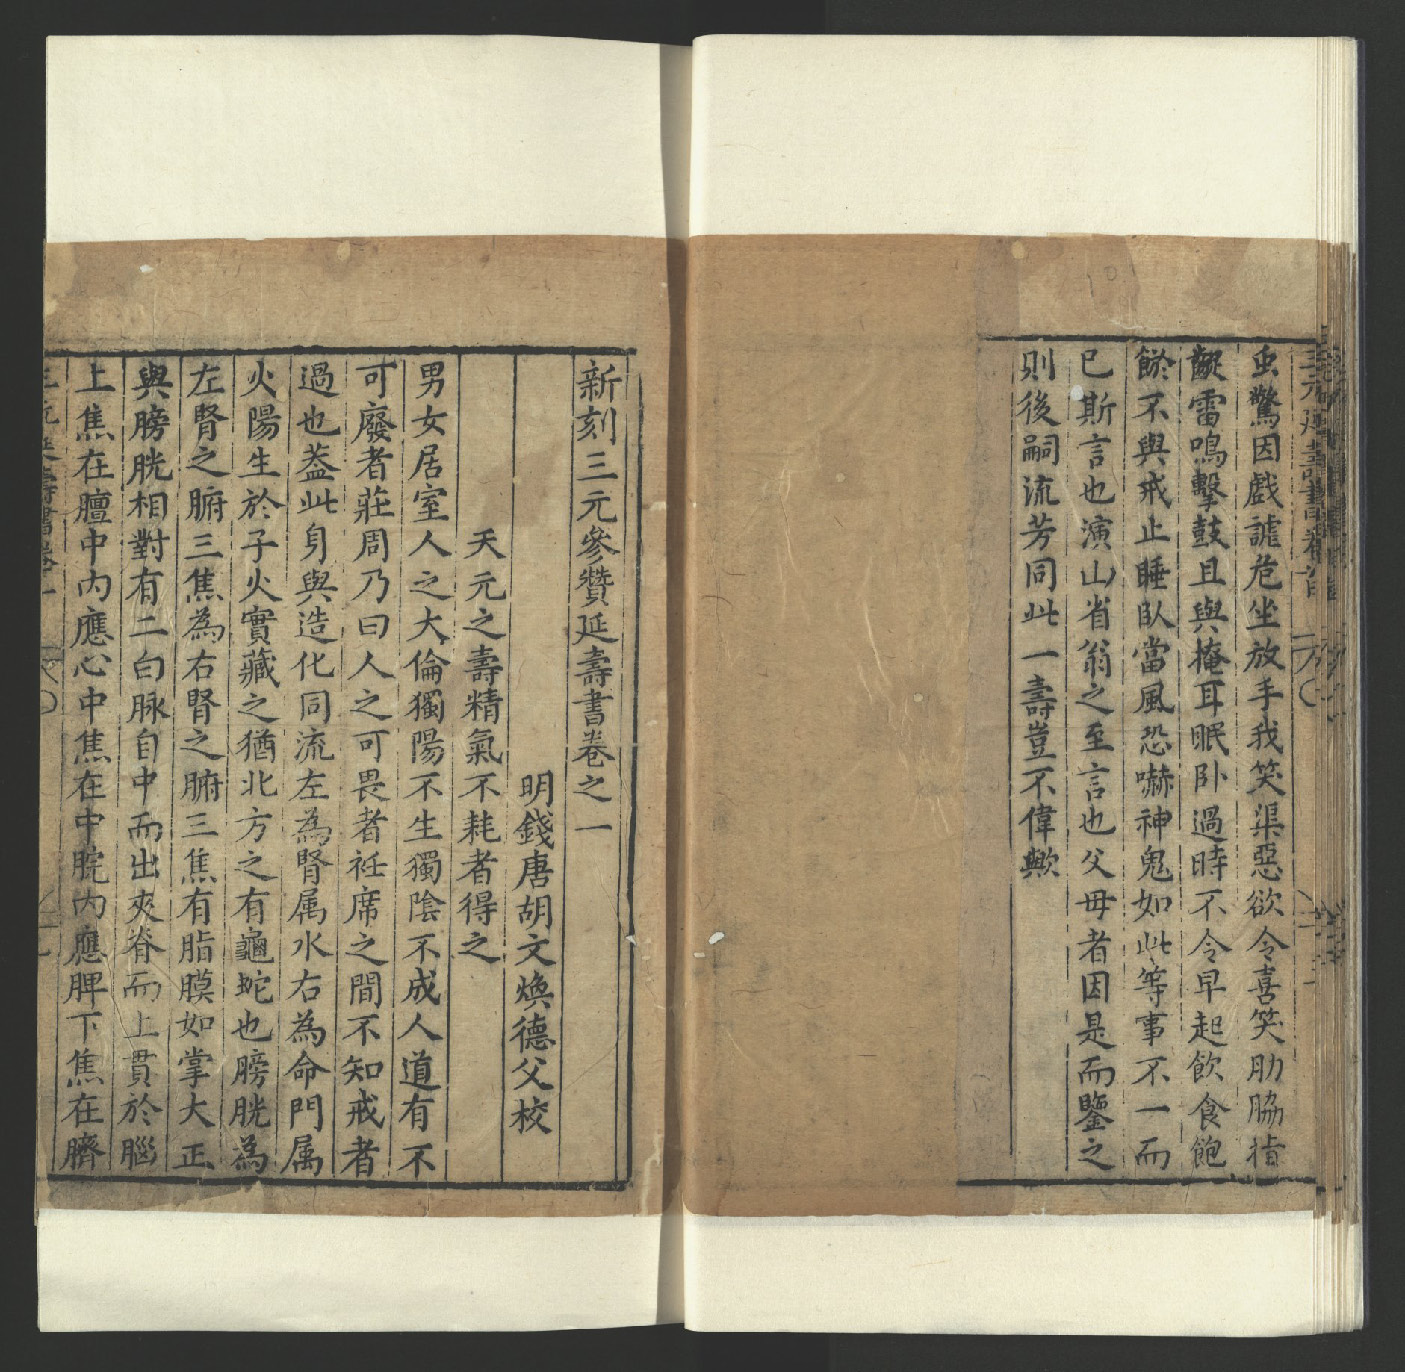 虫驚因戲謔危坐放手我笑渠惡欲令喜笑肋脇指
齪雷鳴擊鼓且與掩耳眠卧過時不令早起飲食飽
餘不與戒止睡臥當風恐嚇神鬼如此等事不一而
已斯言也演山省翁之至言也父母者因是而鑒之
則後嗣流芳同此一壽豈不偉歟
新刻三元參贊延壽書卷之一
明錢唐胡文煥德父校
天元之壽精氣不耗者得之
男女居室人之大倫獨陽不生獨陰不成人道有不
可廢者莊周乃曰人之可畏者衽席之間不知戒者
過也葢此身與造化同流左為腎属水右為命門属
火陽生於子火實藏之猶北方之有龜蛇也膀胱為
左腎之腑三焦為右腎之腑三焦有脂膜如掌大正
與膀胱相對有二白脉自中而出夾脊而上貫於腦
上焦在膻中內應心中焦在中脘內應脾下焦在臍